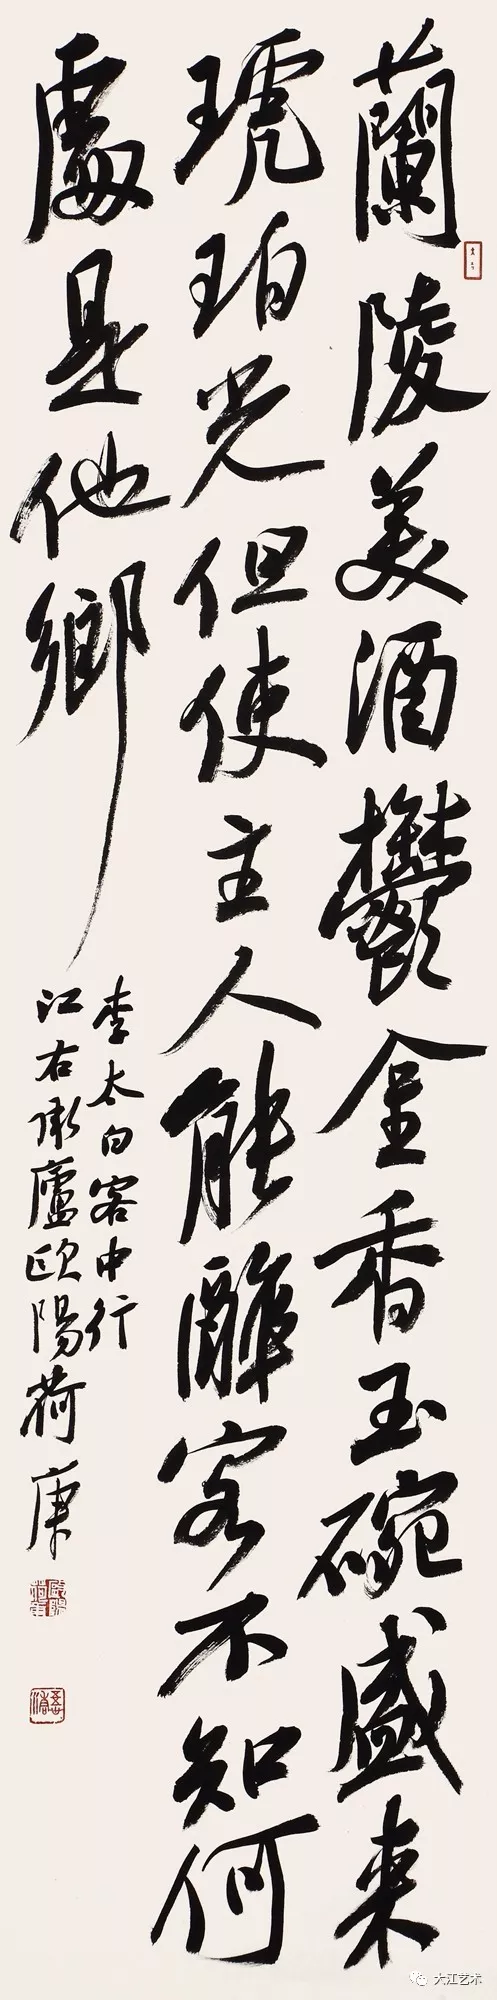 蘭陵美酒鬱金香玉碗盛来
琥珀光但使主人能醉客不知何
處是他鄉
李太白客中行
江右承廬歐陽荷庚
大江艺术